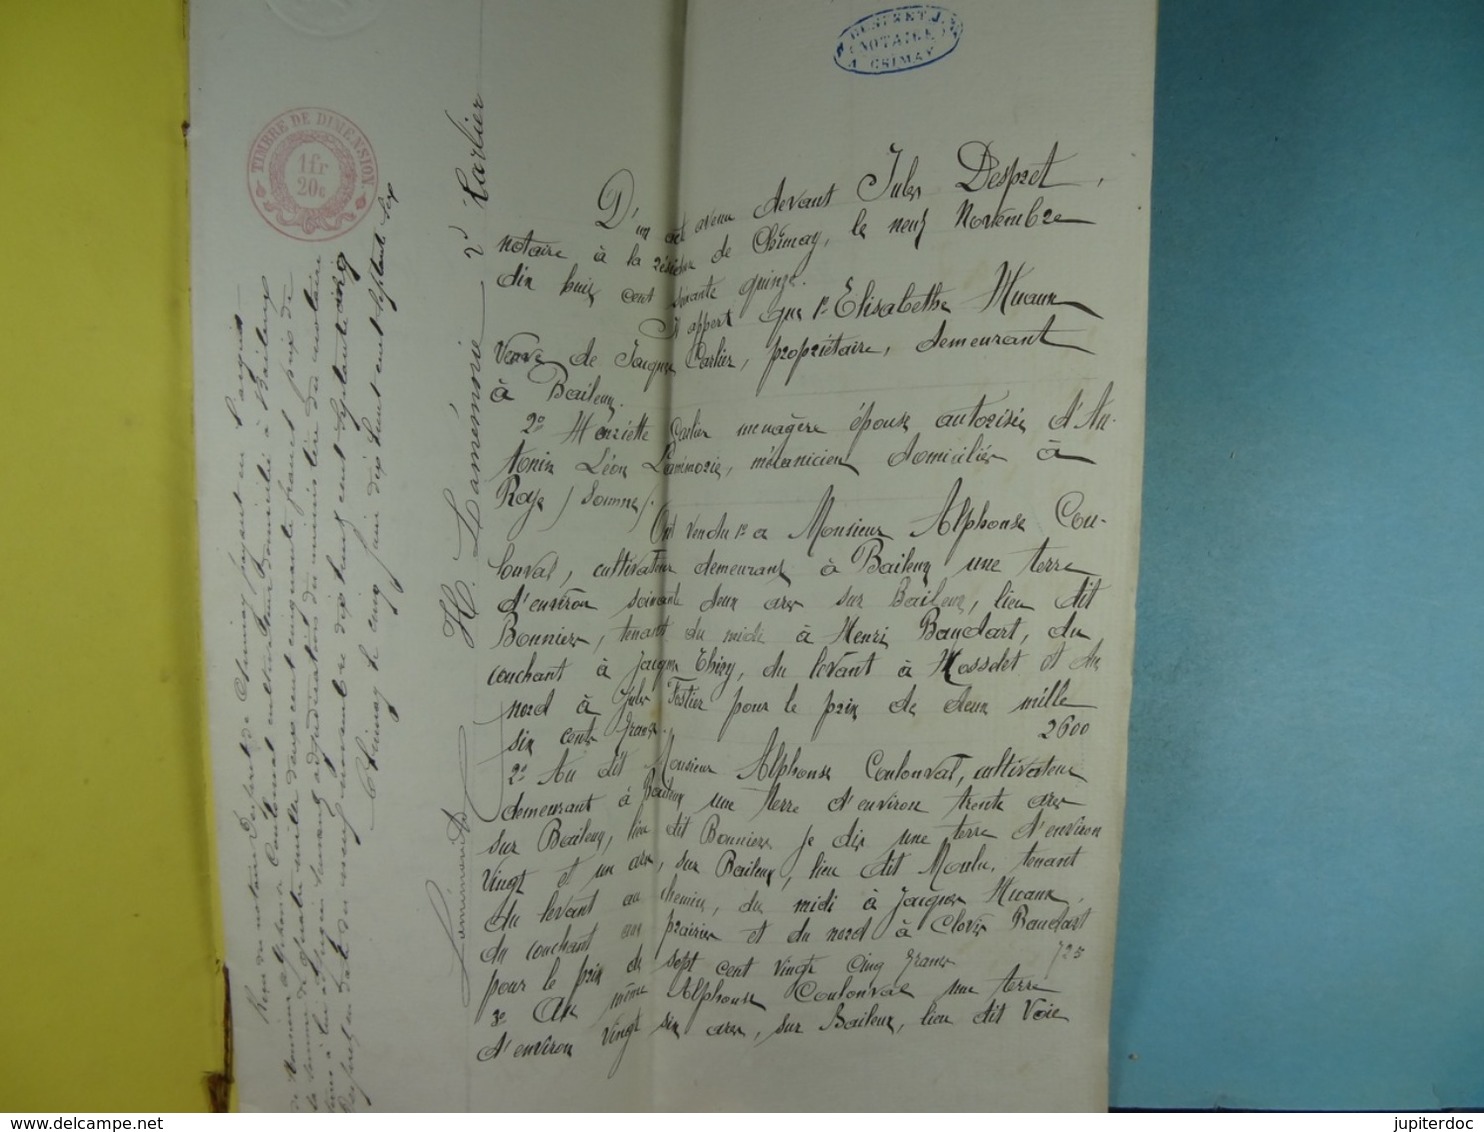 DESPRET J.
NOTAIRE
A CHIMAY
TIMBRE DE DIMENSION
1fr
20c
D'un acte avenu devant Jules Despret,
notaire à la résidence de Chimay, le neuf Novembre
dix huit cent soixante quinze.
Il appert que 1º Elisabethe Huaux
Veuve de Jacques Carlier, propriétaire, demeurant
à Baileux.
2º Henriette Carlier menagère épouse autorisée d'An-
tonin Léon Lammorie, mécanicien domiciliée à
Roye / Somme /.
Ont vendu 1º a Monsieur Alphonse Cou-
lonval, cultivateur demeurant à Baileux une terre
d'environ soixante deux ares sur Baileux, lieu dit
Bonniers, tenant du midi à Henri Baudart, du
couchant à Jacques Thiry, du levant à Hossdet et du
nord à Jules Fostier pour le prix de deux mille
six cents francs. 2600
2º Au dit Monsieur Alphonse Coulonval, cultivateur
demeurant à Baileux une terre d'environ trente ares
sur Baileux, lieu dit Bonniers je dis une terre d'environ
Vingt et un ares, sur Baileux, lieu dit Moulu, tenant
du levant au chemin, du midi à Jacques Huaux,
du couchant aux prairies et du nord à Clovis Baudart
pour le prix de sept cent vingt cinq francs 725
3º Au même Alphonse Coulonval une terre
d'environ Vingt six ares, sur Baileux, lieu dit Voie
H. Lamérnorie 2º Carlier
Reçu du notaire Despret de Chimay, ayant en l'acquit
de Monsieur Alphonse Coulonval cultivateur domicilié à Baileux
la somme de quatre mille deux cent cinquante francs prix de
Despret en date du neuf novembre dix huit cent septante cinq
Chimay le cinq juin dix huit cent septante six